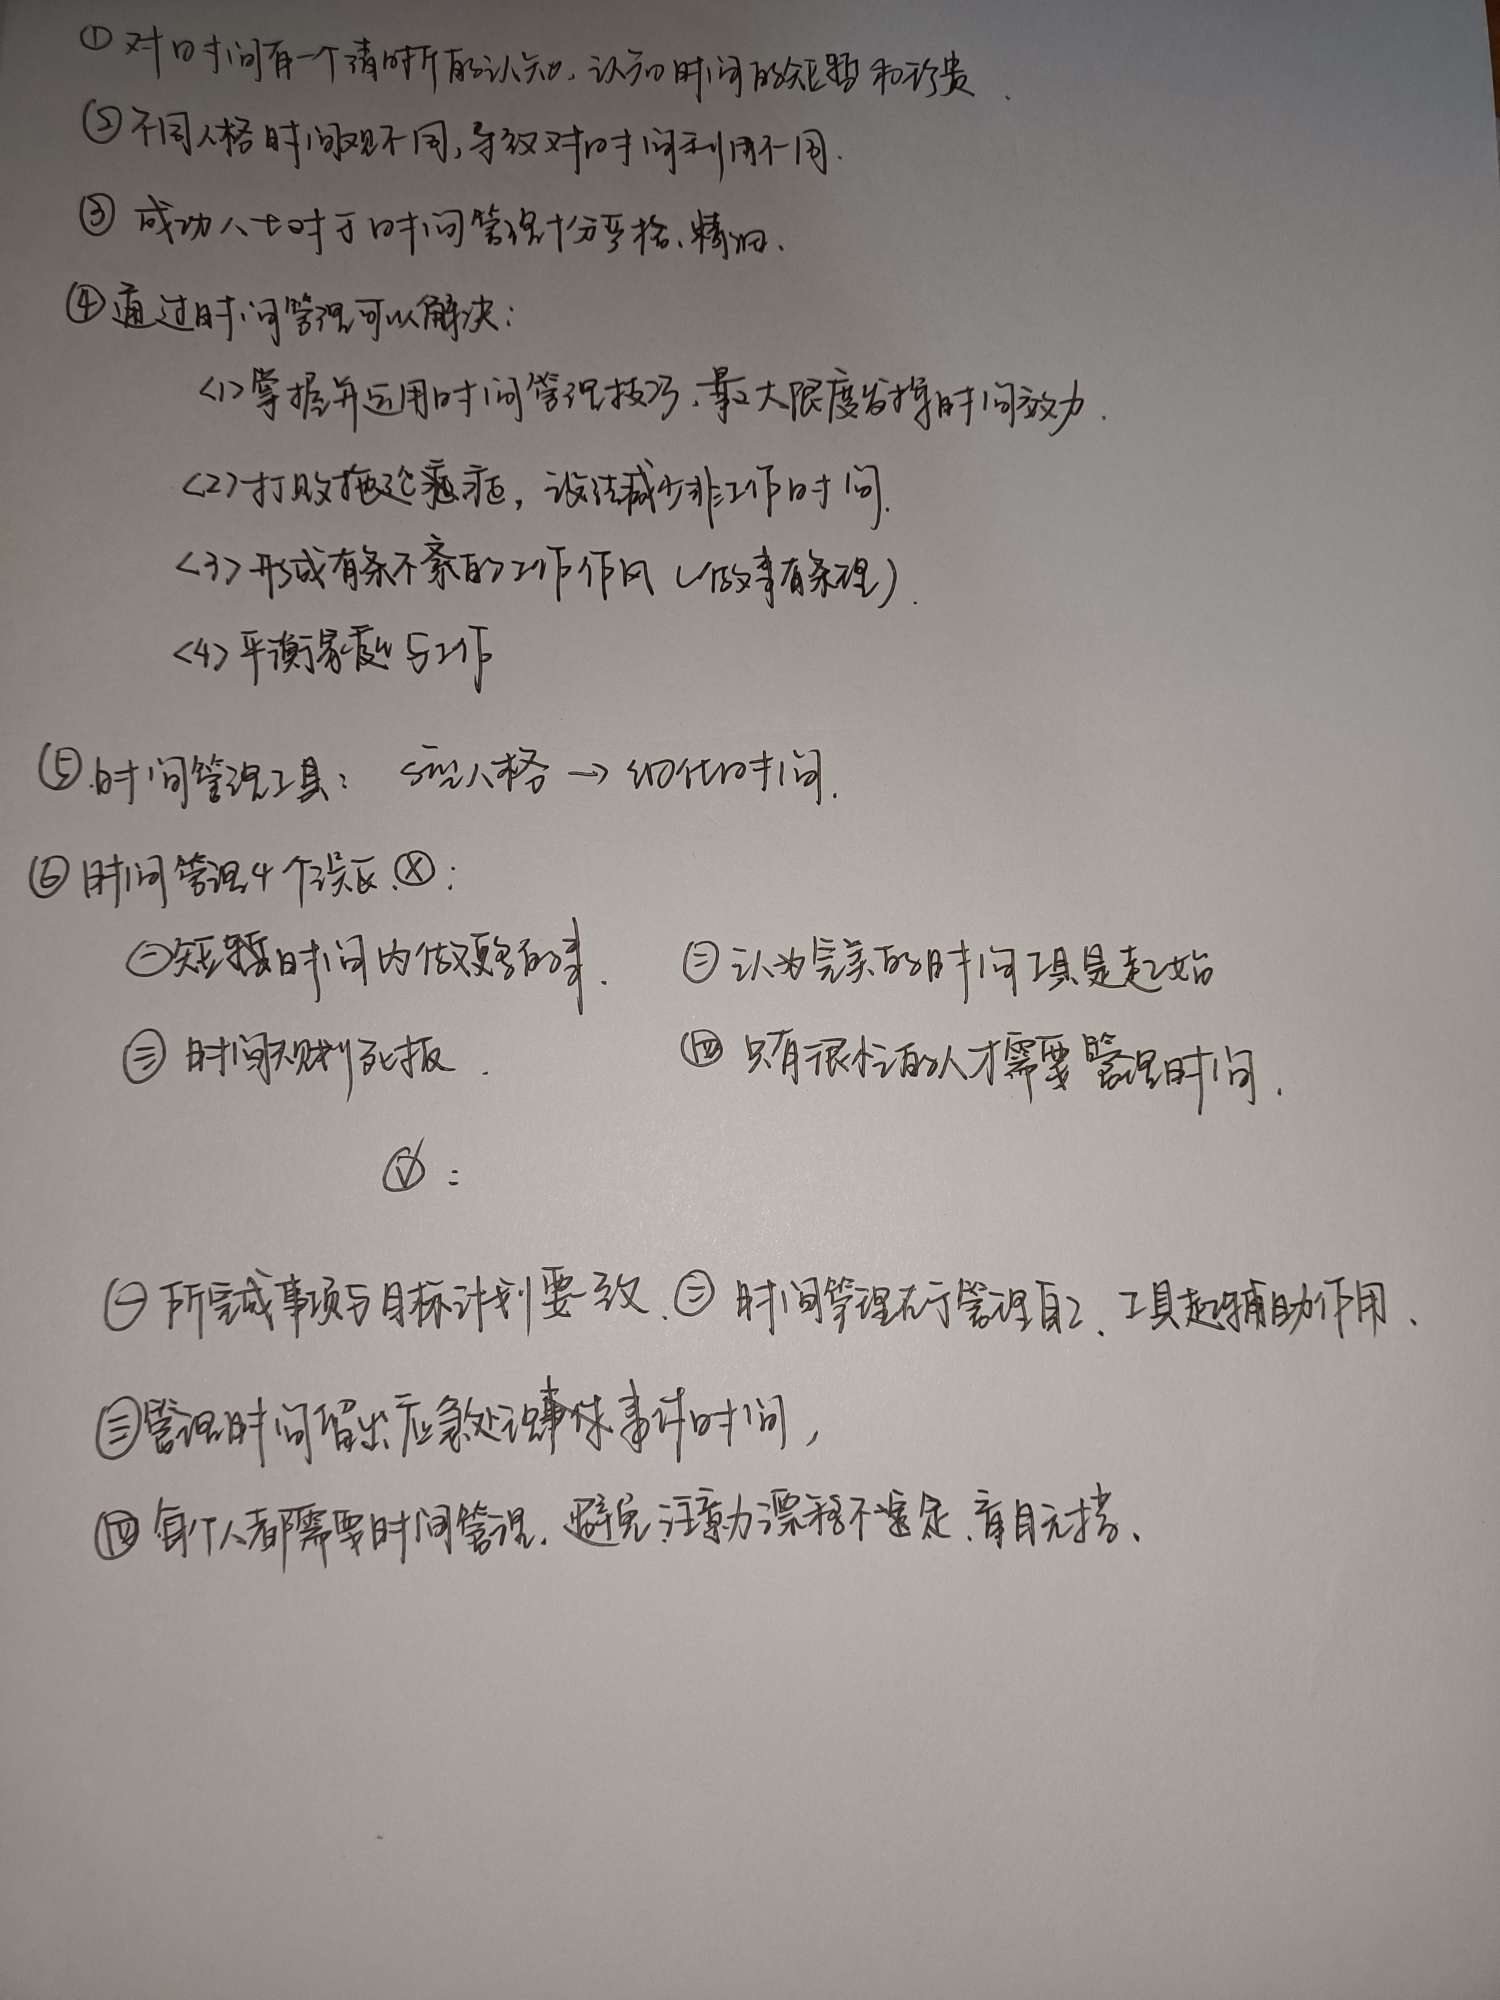 ① 对时间有一个清晰的认知，认知时间的短暂和珍贵.
② 不同人格时间观不同，导致对时间利用不同.
③ 成功人士对于时间管理十分严格、精细.
④ 通过时间管理可以解决：
<1>掌握并运用时间管理技巧、最大限度发挥时间效力.
<2>打败拖延瘾症，设法减少非工作时间.
<3>形成有条不紊的工作作风（做事有条理）.
<4>平衡家庭与工作
⑤ 时间管理工具： S型人格 → 细化时间.
⑥ 时间管理4个误区.ⓧ：
㊀短暂时间内做更多的事. ㊁认为完美的时间工具是起始
㊂ 时间规划死板. ㊃ 只有很忙的人才需要管理时间.
√：
㊀所完成事项与目标计划要一致、㊁ 时间管理在于管理自己、工具起辅助作用.
㊂管理时间留出应急处理事件时间，
㊃ 每个人都需要时间管理、避免注意力漂移不坚定、盲目无措、